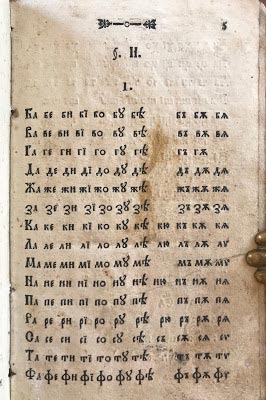 5
§. И.
I.
Ба бе би бї бо бꙋ бѣ бъ бѫ бѧ
Ва ве ви вї во вꙋ вѣ въ вѫ вѧ
Га ге ги гї го гꙋ гѣ гъ гѫ
Да де ди дї до дꙋ дѣ дъ дѫ дѧ
Жа же жи жї жо жꙋ жѣ жъ жѫ жѧ
За зе зи зї зо зꙋ зѣ зъ зѫ зѧ
Ка ке ки кї ко кꙋ кѣ кю къ кѫ кѧ
Ла ле ли лї ло лꙋ лѣ лю лъ лѫ лѧ
Ма ме ми мї мо мꙋ мѣ мъ мѫ мѧ
На не ни нї но нꙋ нѣ ню нъ нѫ нѧ
Па пе пи пї по пꙋ пѣ пъ пѫ пѧ
Ра ре ри рї ро рꙋ рѣ рю ръ рѫ рѧ
Са се си сї со сꙋ сѣ съ сѫ сѧ
Та те ти тї то тꙋ тѣ тъ тѫ тѧ
Фа фе фи фї фо фꙋ фѣ фъ фѫ фѧ